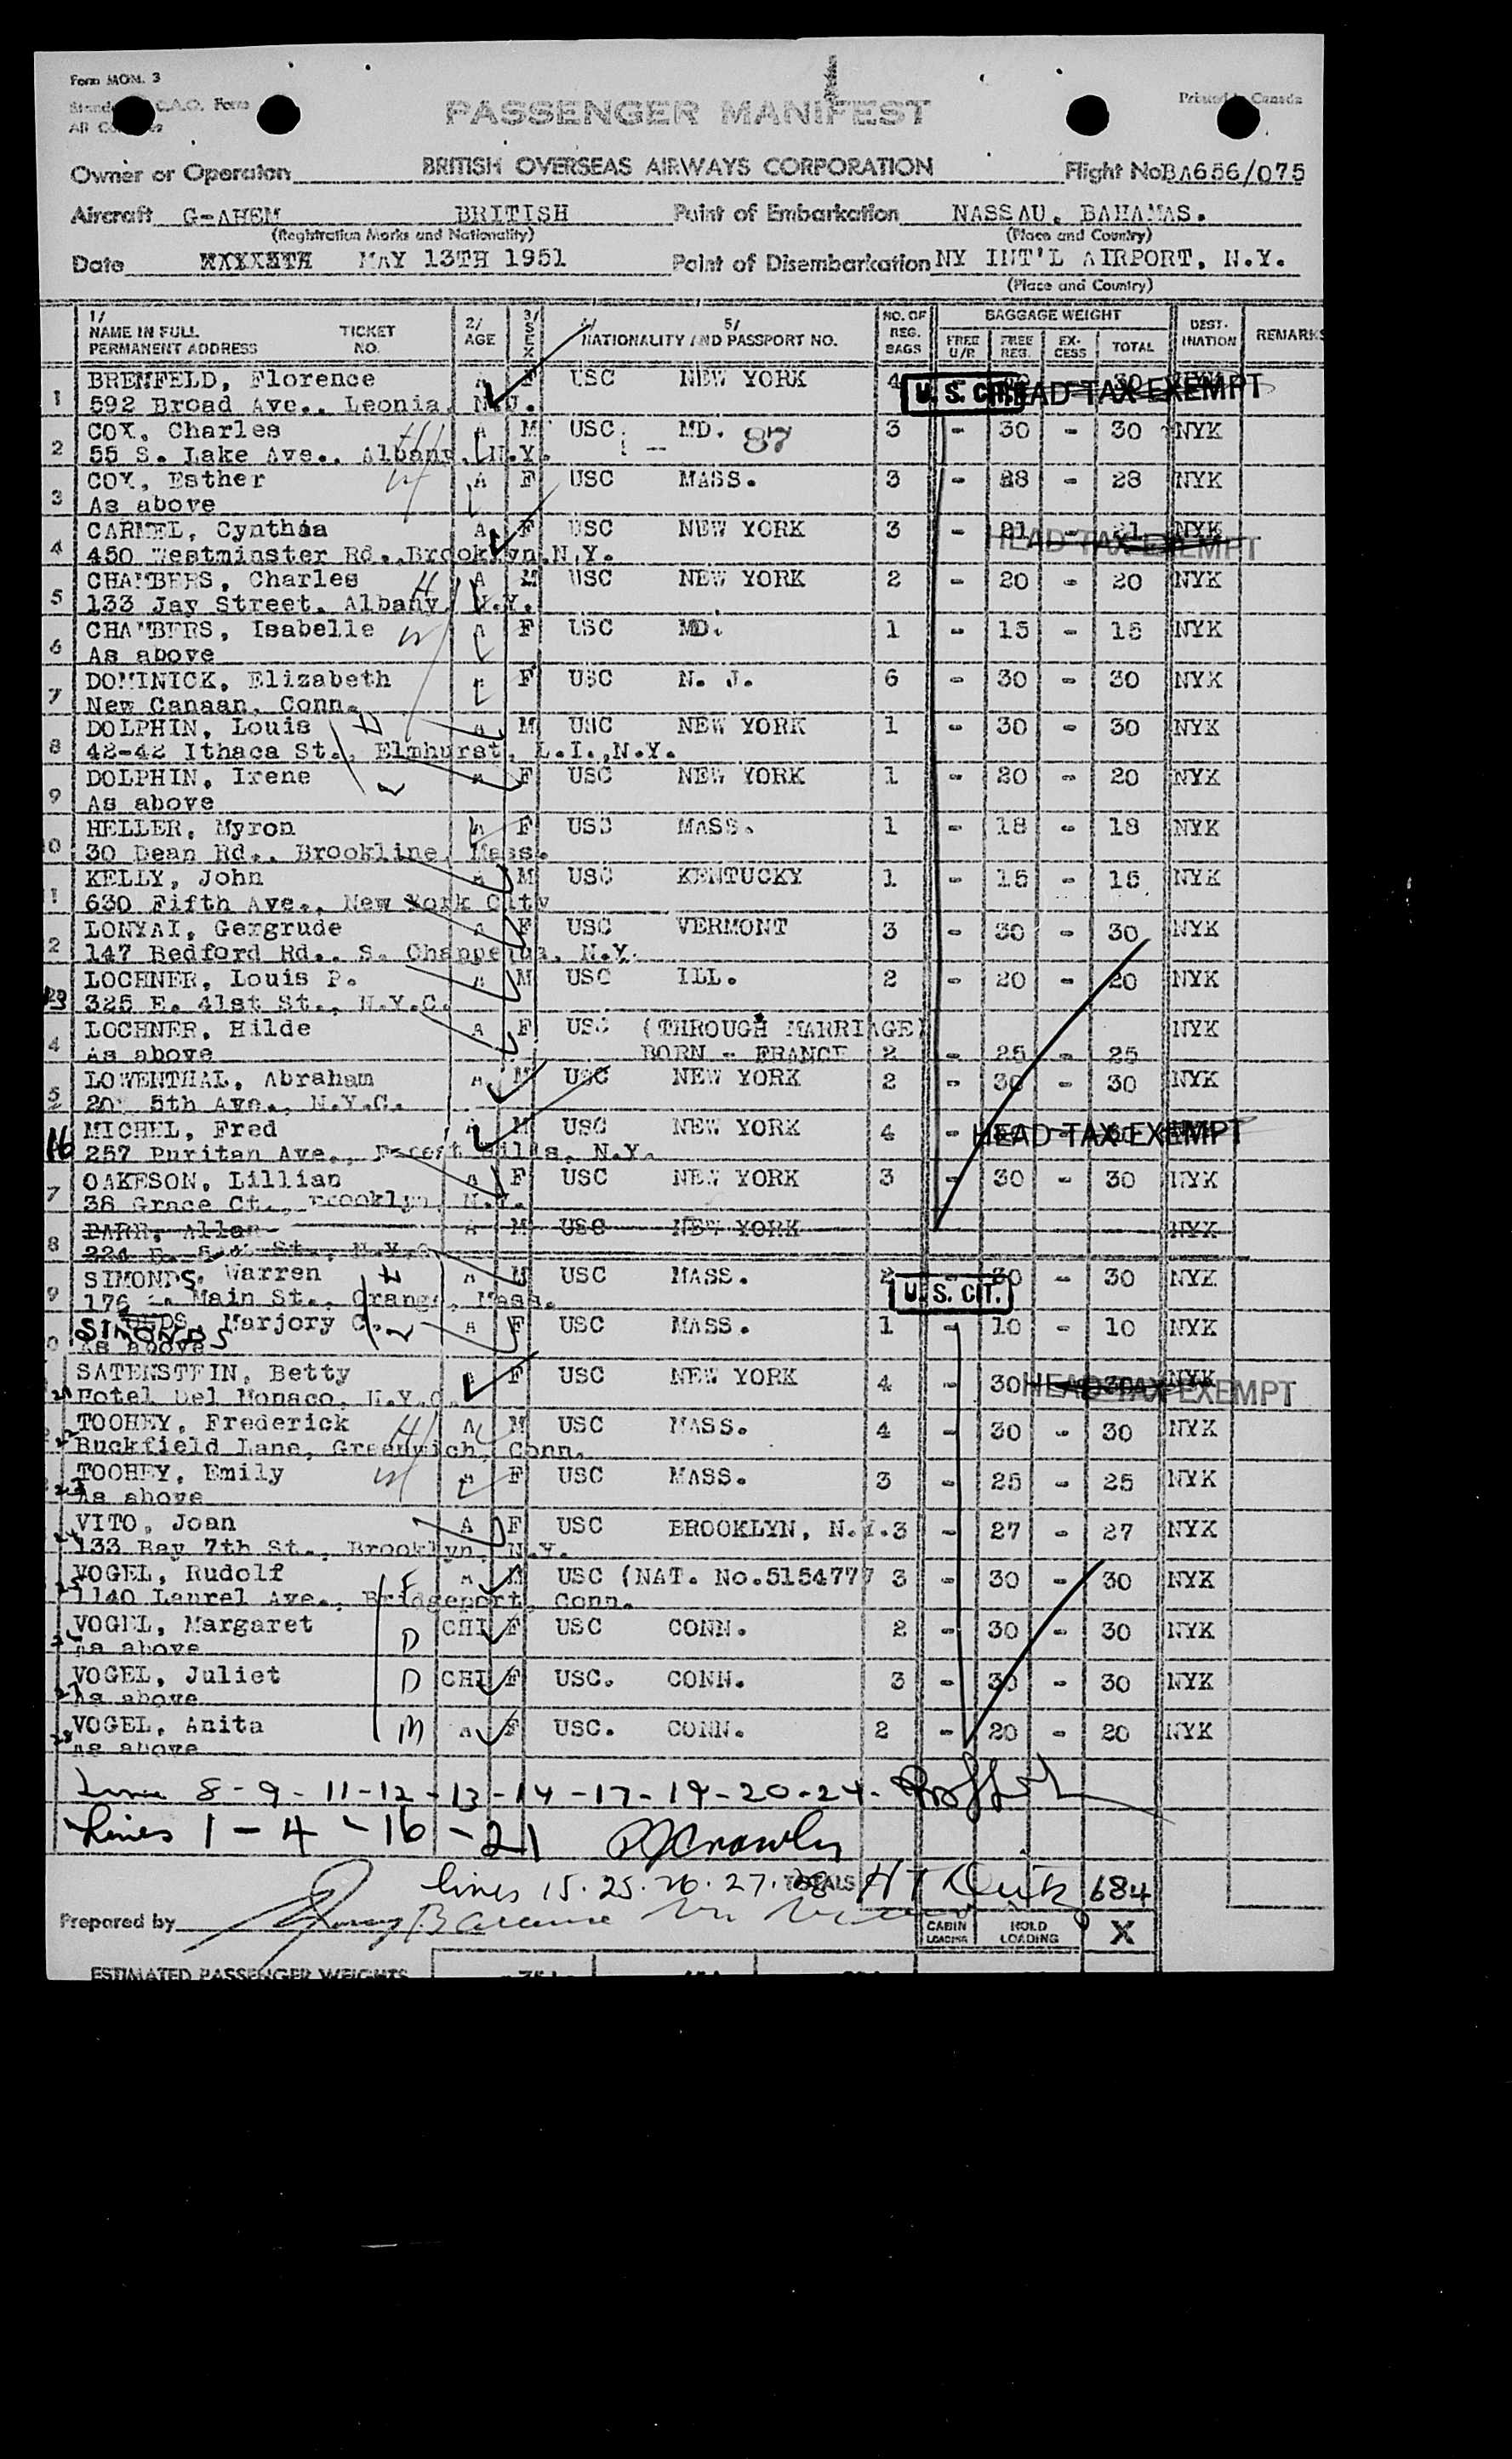 Form MON. 3
C.A.O. Form
Printed Canada
PASSENGER MANIFEST
Owner or Operaton BRITISH OVERSEAS AIRWAYS CORPORATION Flight No BA656/075
Aircraft G-AHEM BRITISH Point of Embarkation NASSAU, BAHAMAS.
(Registration Marks and Nationality) (Place and Country)
Date MAY 13TH 1951 Point of Disembarkation NY INT'L AIRPORT, N.Y.
(Place and Country)
1/ NAME IN FULL PERMANENT ADDRESS TICKET NO. 2/ AGE 3/ SEX 4/ 5/ NATIONALITY AND PASSPORT NO. NO. OF REG. BAGS BAGGAGE WEIGHT FREE U/R FREE REG. EX-CESS TOTAL DEST-INATION REMARKS
1 BRENFELD, Florence A F USC NEW YORK 4 - 30 U. S. CIT. HEAD TAX EXEMPT
592 Broad Ave., Leonia, N.J.
2 COX, Charles A M USC MD. 87 3 - 30 - 30 NYK
55 S. Lake Ave., Albany, N.Y.
3 COX, Esther A F USC MASS. 3 - 28 - 28 NYK
As above
4 CARMEL, Cynthia A F USC NEW YORK 3 - 21 - 21 NYK HEAD TAX EXEMPT
450 Westminster Rd., Brooklyn, N.Y.
5 CHAMBERS, Charles H A M USC NEW YORK 2 - 20 - 20 NYK
133 Jay Street, Albany, N.Y.
6 CHAMBERS, Isabelle W A F USC MD. 1 - 15 - 15 NYK
As above
7 DOMINICK, Elizabeth F USC N. J. 6 - 30 - 30 NYK
New Canaan, Conn.
8 DOLPHIN, Louis H A M USC NEW YORK 1 - 30 - 30 NYK
42-42 Ithaca St., Elmhurst, L.I.,N.Y.
9 DOLPHIN, Irene A F USC NEW YORK 1 - 20 - 20 NYK
As above
0 HELLER, Myron A F USC MASS. 1 - 18 - 18 NYK
30 Dean Rd., Brookline, Mass.
1 KELLY, John A M USC KENTUCKY 1 - 15 - 15 NYK
630 Fifth Ave., New York City
2 LONYAI, Gergrude A F USC VERMONT 3 - 30 - 30 NYK
147 Bedford Rd., S. Chappequa, N.Y.
13 LOCHNER, Louis P. A M USC ILL. 2 - 20 - 20 NYK
325 E. 41st St., N.Y.C.
4 LOCHNER, Hilde A F USC (THROUGH MARRIAGE) NYK
As above BORN - FRANCE 2 - 25 - 25
5 LOWENTHAL, Abraham A M USC NEW YORK 2 - 30 - 30 NYK
5th Ave., N.Y.C.
16 MICHEL, Fred A M USC NEW YORK 4 - HEAD TAX EXEMPT
257 Puritan Ave., Forest Hills, N.Y.
7 OAKESON, Lillian A F USC NEW YORK 3 - 30 - 30 NYK
38 Grace Ct., Brooklyn, N.Y.
8 PARR, Allan A M USC NEW YORK NYK
224 E. St., N.Y.C.
9 SIMONDS, Warren H A M USC MASS. 2 - 30 - 30 NYK
176 Main St., Orange, Mass. U. S. CIT.
0 SIMONDS, Marjory C. A F USC MASS. 1 - 10 - 10 NYK
As above
21 SATENSTEIN, Betty F USC NEW YORK 4 - 30 - 30 NYK HEAD TAX EXEMPT
Hotel Del Monaco, N.Y.C.
22 TOOHEY, Frederick H A M USC MASS. 4 - 30 - 30 NYK
Buckfield Lane, Greenwich, Conn.
23 TOOHEY, Emily W A F USC MASS. 3 - 25 - 25 NYK
As above
24 VITO, Joan A F USC BROOKLYN, N.Y. 3 - 27 - 27 NYK
133 Bay 7th St., Brooklyn, N.Y.
25 VOGEL, Rudolf F A M USC (NAT. No.5154777 3 - 30 - 30 NYK
1140 Laurel Ave., Bridgeport, Conn.
26 VOGEL, Margaret D CHI F USC CONN. 2 - 30 - 30 NYK
As above
27 VOGEL, Juliet D CHI F USC. CONN. 3 - 30 - 30 NYK
As above
28 VOGEL, Anita M A F USC. CONN. 2 - 20 - 20 NYK
As above
Line 8-9-11-12-13-14-17-19-20-24.
Lines 1-4-16-21
lines 15.25.26.27.28 TOTALS 684
Prepared by
CABIN LOADING HOLD LOADING X
ESTIMATED PASSENGER WEIGHTS